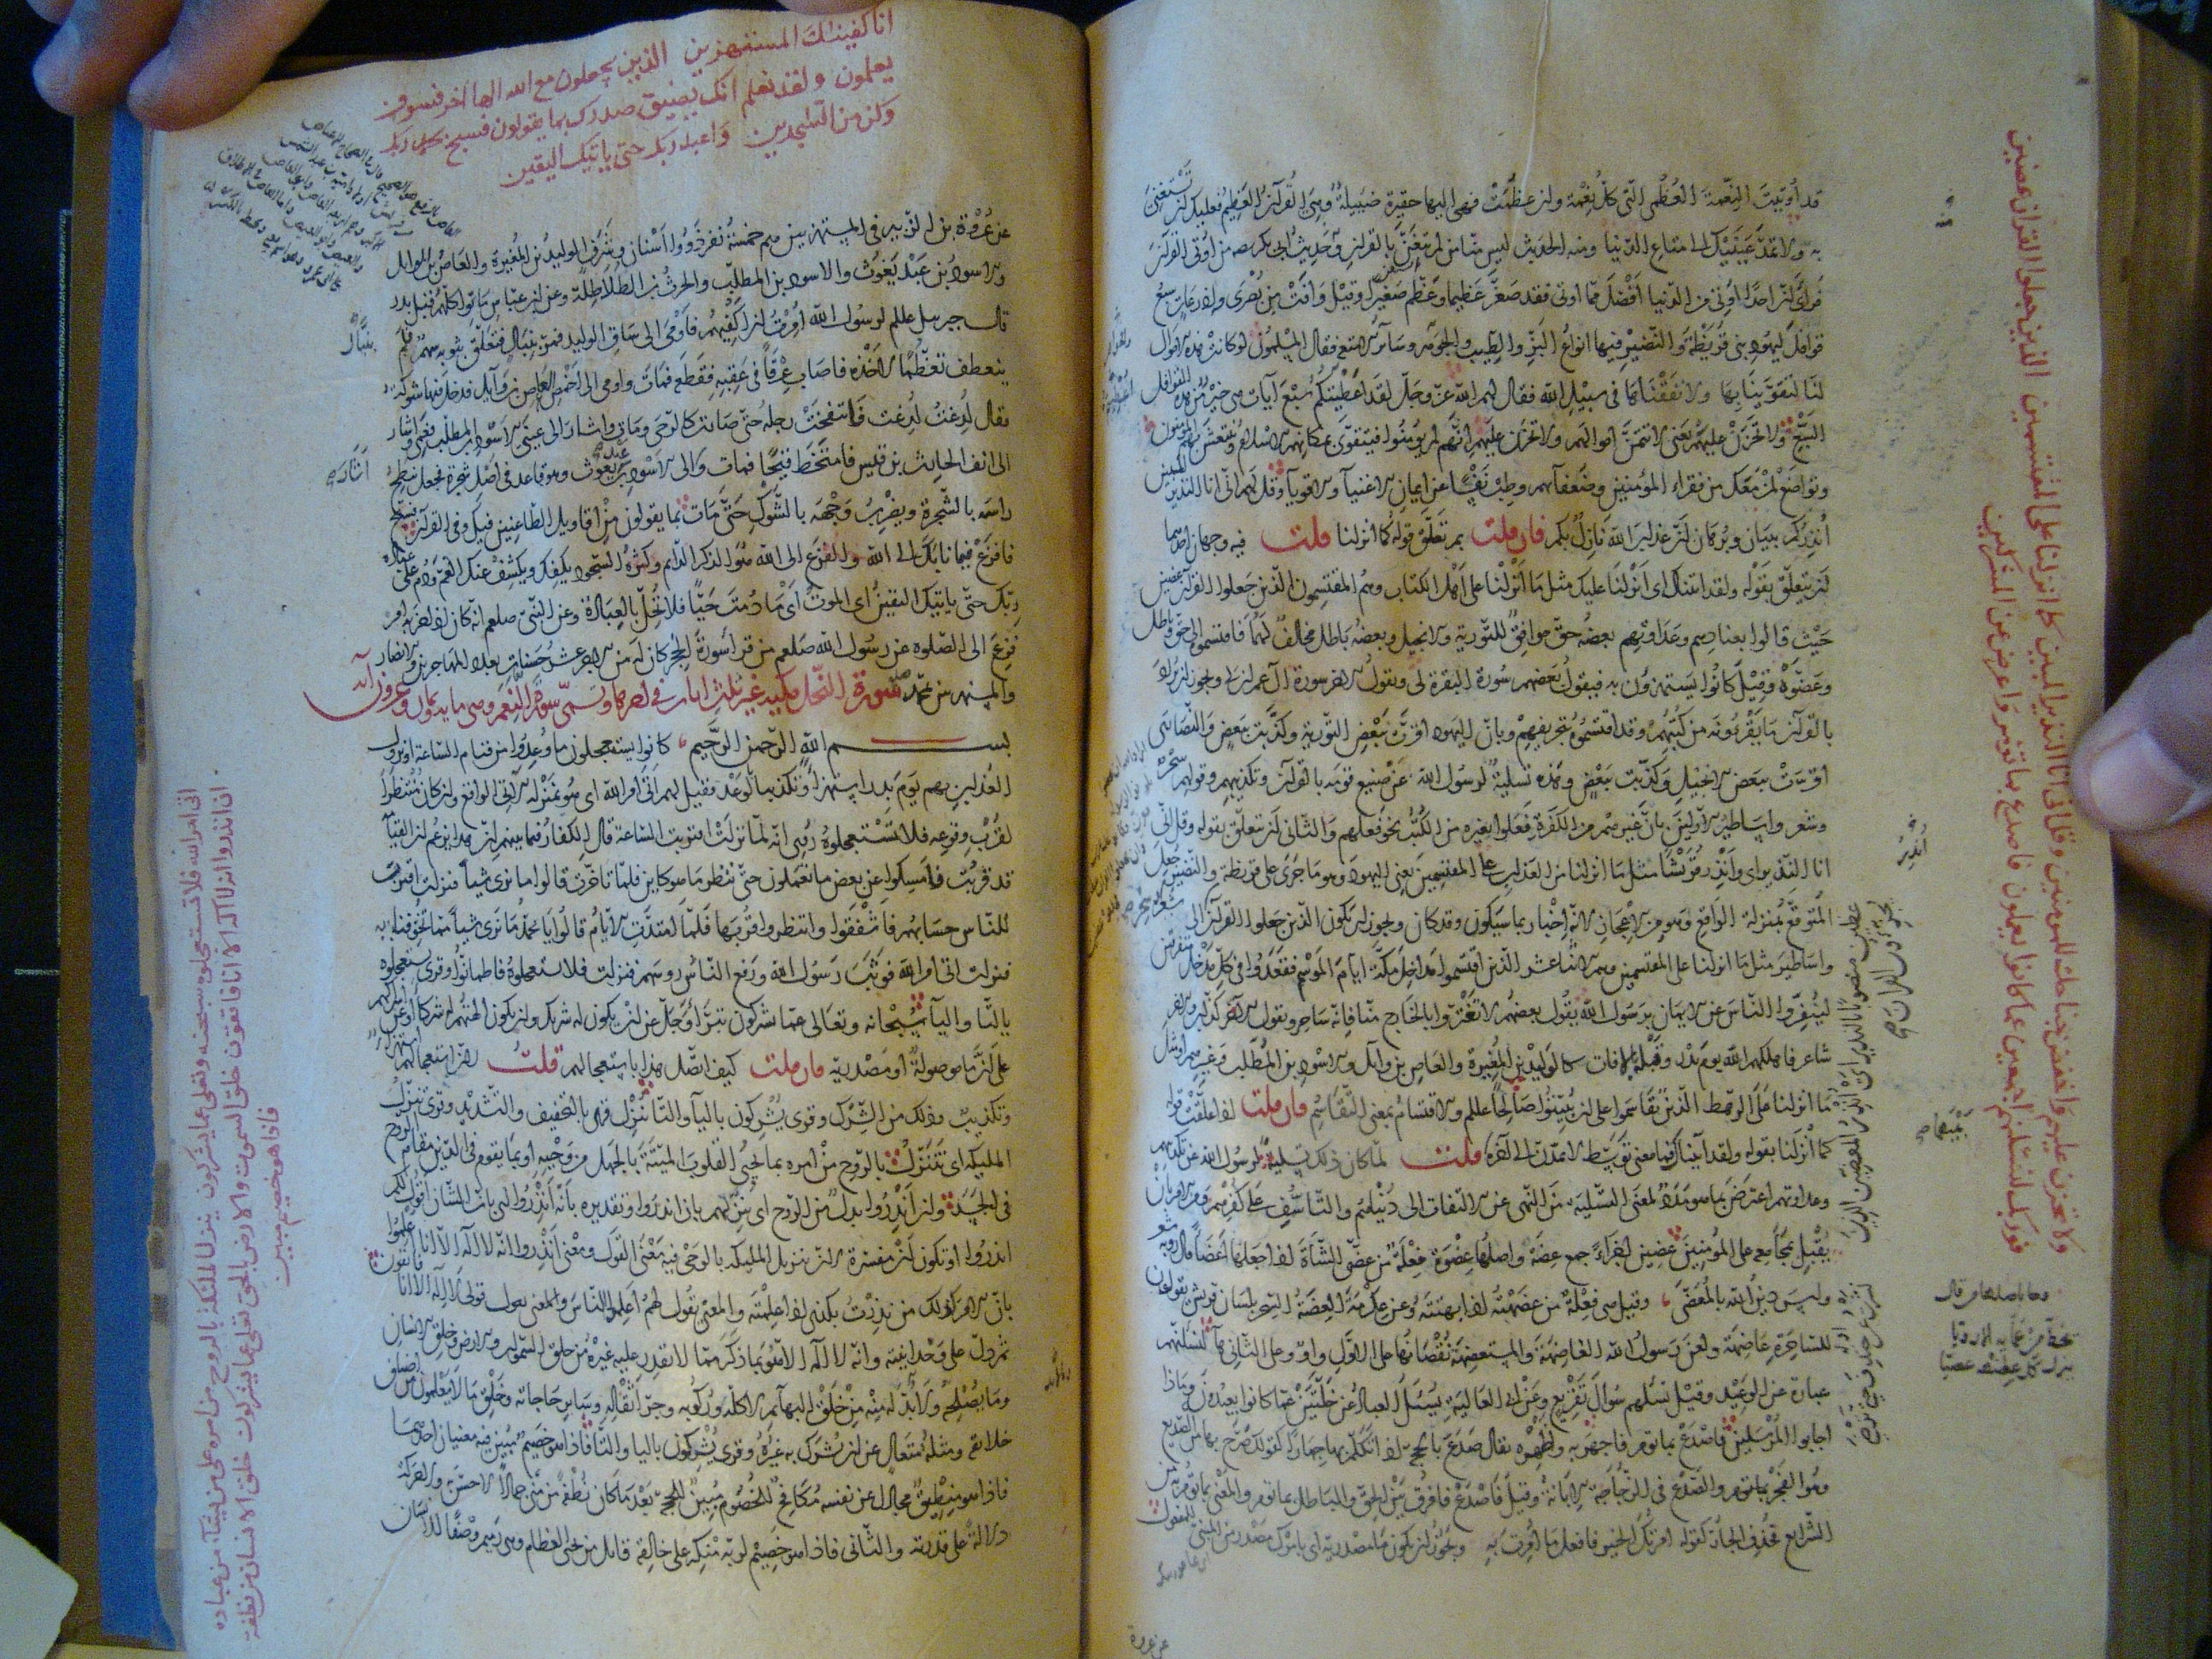 قد أوتيت النعمة العظمى التي كل نعمة وان عظمت فهي اليها حقيرة ضئيلة وهي القرآن العظيم فعليك ان تستغني
به ولا تمدن عينيك الى متاع الدنيا ومنه الحديث ليس منا من لم يتغن بالقرآن وحديث ابي بكر من اوتي القرآن
فرأى ان احدا اوتي من الدنيا افضل مما اوتي فقد صغر عظيما وعظم صغيرا وقيل وافت من بصرى واذرعات سبع
قوافل ليهود بني قريظة والنضير فيها انواع البز والطيب والجوهر وسائر الامتعة فقال المسلمون لو كانت هذه الاموال
لنا لتقوينا بها ولانفقناها في سبيل الله فقال لهم الله عز وجل لقد اعطيتكم سبع آيات هي خير من هذه القوافل
السبع ولا تحزن عليهم يعني لا تتمن اموالهم ولا تحزن عليهم انهم لم يؤمنوا فيتقوى بمكانهم الاسلام وينتعش بهم المؤمنون
وتواضع لمن معك من فقراء المؤمنين وضعفائهم وطب نفسا عن ايمان الاغنياء والاقوياء وقل لهم اني انا النذير المبين
أنذركم ببيان وبرهان ان عذاب الله نازل بكم فان قلت بم تعلق قوله كما انزلنا قلت فيه وجهان احدهما
ان يتعلق بقوله ولقد آتيناك اي انزلنا عليك مثل ما أنزلنا على أهل الكتاب وهم المقتسمون الذين جعلوا القرآن عضين
حيث قالوا بعنادهم وعداوتهم بعضه حق موافق للتورية والانجيل وبعضه باطل مخالف لهما فاقتسموه الى حق وباطل
وعضوه وقيل كانوا يستهزؤن به فيقول بعضهم سورة البقرة لي ويقول الآخر سورة آل عمران لي ويجوز ان يراد
بالقرآن ما يقرؤنه من كتبهم وقد اقتسموه بتحريفهم وبان اليهود اقرت ببعض التورية وكذبت ببعض والنصارى
اقرت ببعض الانجيل وكذبت ببعض وهذه تسلية لرسول الله عن صنيع قومه بالقرآن وتكذيبهم وقولهم سحر
وشعر واساطير الاولين بان غيرهم من الكفرة فعلوا بغيره من الكتب نحو فعلهم والثاني ان يتعلق بقوله وقل اني
انا النذير اي وأنذر قريشا مثل ما انزلنا من العذاب على المقتسمين يعني اليهود وهو ما جرى على قريظة والنضير جعل
المتوقع بمنزلة الواقع وهو من الاعجاز لانه اخبار بما سيكون وقد كان ويجوز ان يكون الذين جعلوا القرآن
واساطير مثل ما انزلنا على المقتسمين وهم الاثنا عشر الذين اقتسموا مداخل مكة ايام الموسم فقعدوا في كل مدخل متفرقين
لينفروا الناس عن الايمان برسول الله يقول بعضهم لا تغتروا بالخارج منا فانه ساحر ويقول الآخر كذاب والآخر
شاعر فاهلكهم الله يوم بدر وقبله بآفات كالوليد بن المغيرة والعاص بن وائل والاسود بن المطلب وغيرهم او مثل
ما انزلنا على الرهط الذين تقاسموا على ان يبيتوا صالحا عللم والاقتسام بمعنى التقاسم فان قلت اذا علقت قوله
كما أنزلنا بقوله ولقد آتيناك فما معنى توسط لا تمدن الى آخره قلت لما كان ذلك تسلية لرسول الله عن تكذيبهم
وعداوتهم اعترض بما هو مدد لمعنى التسلية من النهي عن الالتفات الى دنياهم والتأسف على كفرهم ومن الامر بان
يقبل بمجامعه على المؤمنين عضين اجزاء جمع عضة واصلها عضوة فعلة من عضى الشاة اذا جعلها اعضاء قال رؤبة
وليس دين الله بالمعضى وقيل هي فعلة من عضهته اذا بهته وعن عكرمة العضة السحر بلسان قريش يقولون
للساحرة عاضهة ولعن رسول الله العاضهة والمستعضهة نقصانها على الاول واو وعلى الثاني هاء لنسألنهم
عبارة عن الوعيد وقيل نسألهم سؤال تقريع وعن ابي العالية يسئل العباد عن خلتين عما كانوا يعبدون وماذا
اجابوا المرسلين فاصدع بما تؤمر فاجهر به واظهره يقال صدع بالحجة اذا تكلم بها جهارا كقولك صرح بها من الصديع
وهو الفجر والصدع في الزجاجة الابانة وقيل فاصدع فافرق بين الحق والباطل بما تؤمر والمعنى بما تؤمر به من
الشرائع فحذف الجار كقوله امرتك الخير فافعل ما امرت به ويجوز ان يكون ما مصدرية اي بامرك مصدر من المبني للمفعول
عن عروة
كما انزلنا على المقتسمين الذين جعلوا القرآن عضين
فوربك لنسئلنهم اجمعين عما كانوا يعملون فاصدع بما تؤمر واعرض عن المشركين
انا كفيناك المستهزئين الذين يجعلون مع الله الها آخر فسوف
يعلمون ولقد نعلم انك يضيق صدرك بما يقولون فسبح بحمد ربك
وكن من الساجدين واعبد ربك حتى ياتيك اليقين
عن عروة بن الزبير في المستهزئين هم خمسة نفر ذووا اسنان وشرف الوليد بن المغيرة والعاص بن الوائل
والاسود بن عبد يغوث والاسود بن المطلب والحرث بن الطلاطلة وعن ابن عباس ماتوا كلهم قبل بدر
قال جبريل عللم لرسول الله امرت ان اكفيكهم فاومى الى ساق الوليد فمر بنبال فتعلق بثوبه سهم فلم
ينعطف تعظما لاخذه فاصاب عرقا في عقبه فقطعه فمات واومى الى اخمص العاص بن وائل فدخل فيها شوكة
فقال لدغت لدغت فانتفخت رجله حتى صارت كالرحى ومات واشار الى عيني الاسود بن المطلب فعمي واشار
الى انف الحارث بن قيس فامتخط قيحا فمات والى الاسود بن عبد يغوث وهو قاعد في اصل شجرة فجعل ينطح
راسه بالشجرة ويضرب وجهه بالشوك حتى مات بما يقولون من اقاويل الطاعنين فيك وفي القرآن فسبح
فافزع فيما نابك الى الله والفزع الى الله هو الذكر الدائم وكثرة السجود يكفك ويكشف عنك الغم ودم على عبادة
ربك حتى ياتيك اليقين اي الموت اي ما دمت حيا فلا تخل بالعبادة وعن النبي صلعم انه كان اذا حزبه امر
فزع الى الصلوة عن رسول الله صلعم من قرأ سورة الحجر كان له من الاجر عشر حسنات بعدد المهاجرين والانصار
والمستهزئين بمحمد سورة النحل مكية غير ثلث ايات في اخرها وتسمى سورة النعم وهي ماية وثمان وعشرون آية
بسم الله الرحمن الرحيم كانوا يستعجلون ما وعدوا من قيام الساعة او نزول
العذاب بهم يوم بدر استهزاء وتكذيبا بالوعد فقيل لهم اتى امر الله اي هو بمنزلة الآتي الواقع وان كان منتظرا
لقرب وقوعه فلا تستعجلوه روي انه لما نزلت اقتربت الساعة قال الكفار فيما بينهم ان هذا يزعم ان القيامة
قد قربت فامسكوا عن بعض ما تعملون حتى ننظر ما هو كائن فلما تاخرت قالوا ما نرى شيئا فنزلت اقترب
للناس حسابهم فاشفقوا وانتظروا قربها فلما امتدت الايام قالوا يا محمد ما نرى شيئا مما تخوفنا به
فنزلت اتى امر الله فوثب رسول الله ورفع الناس روسهم فنزلت فلا تستعجلوه فاطمأنوا وقرئ تستعجلوه
بالتاء والياء سبحانه وتعالى عما يشركون تبرأ وجل عن ان يكون له شريك وان يكون آلهتهم له شركاء او عن اشراكهم
على ان ما موصولة او مصدرية فان قلت كيف اتصل هذا باستعجالهم قلت لان استعجالهم استهزاء
وتكذيب وذلك من الشرك وقرئ يشركون بالياء والتاء ينزل قرئ بالتخفيف والتشديد وقرئ تنزل
الملئكة اي تتنزل بالروح من امره بما يحيي القلوب الميتة بالجهل من وحيه او بما يقوم في الدين مقام الروح
في الجسد وان انذروا بدل من الروح اي ينزلهم بان انذروا وتقديره بانه أنذروا اي بان الشان اقول لكم
انذروا او تكون ان مفسرة لان تنزيل الملئكة بالوحي فيه معنى القول ومعنى انذروا انه لا اله الا انا اعلموا
بان الامر ذلك من نذرت بكذا اذا علمته والمعنى يقول لهم أعلموا الناس قولي لا اله الا انا فاتقون
ثم دل على وحدانيته وانه لا اله الا هو بما ذكر مما لا يقدر عليه غيره من خلق السموات والارض وخلق الانسان
وما يصلحه ولا بد له منه من خلق البهائم لاكله وركوبه وجر اثقاله وسائر حاجاته وخلق ما لا يعلمون من اصناف
خلائقه ومثله متعال عن ان يشرك به غيره وقرئ يشركون بالياء والتاء فاذا هو خصيم مبين فيه معنيان احدهما
فاذا هو منطيق مجادل عن نفسه مكافح للخصوم مبين للحجة بعد ما كان نطفة من مني جمادا لا حس به ولا حركة
دلالة على قدرته والثاني فاذا هو خصيم لربه منكر على خالقه قائل من يحي العظام وهي رميم وصفا للانسان
اتى امر الله فلا تستعجلوه سبحنه وتعلى عما يشركون ينزل الملئكة بالروح من امره على من يشاء من عباده
ان انذروا انه لا اله الا انا فاتقون خلق السموت والارض بالحق تعلى عما يشركون خلق الانسان من نطفة
فاذا هو خصيم مبين